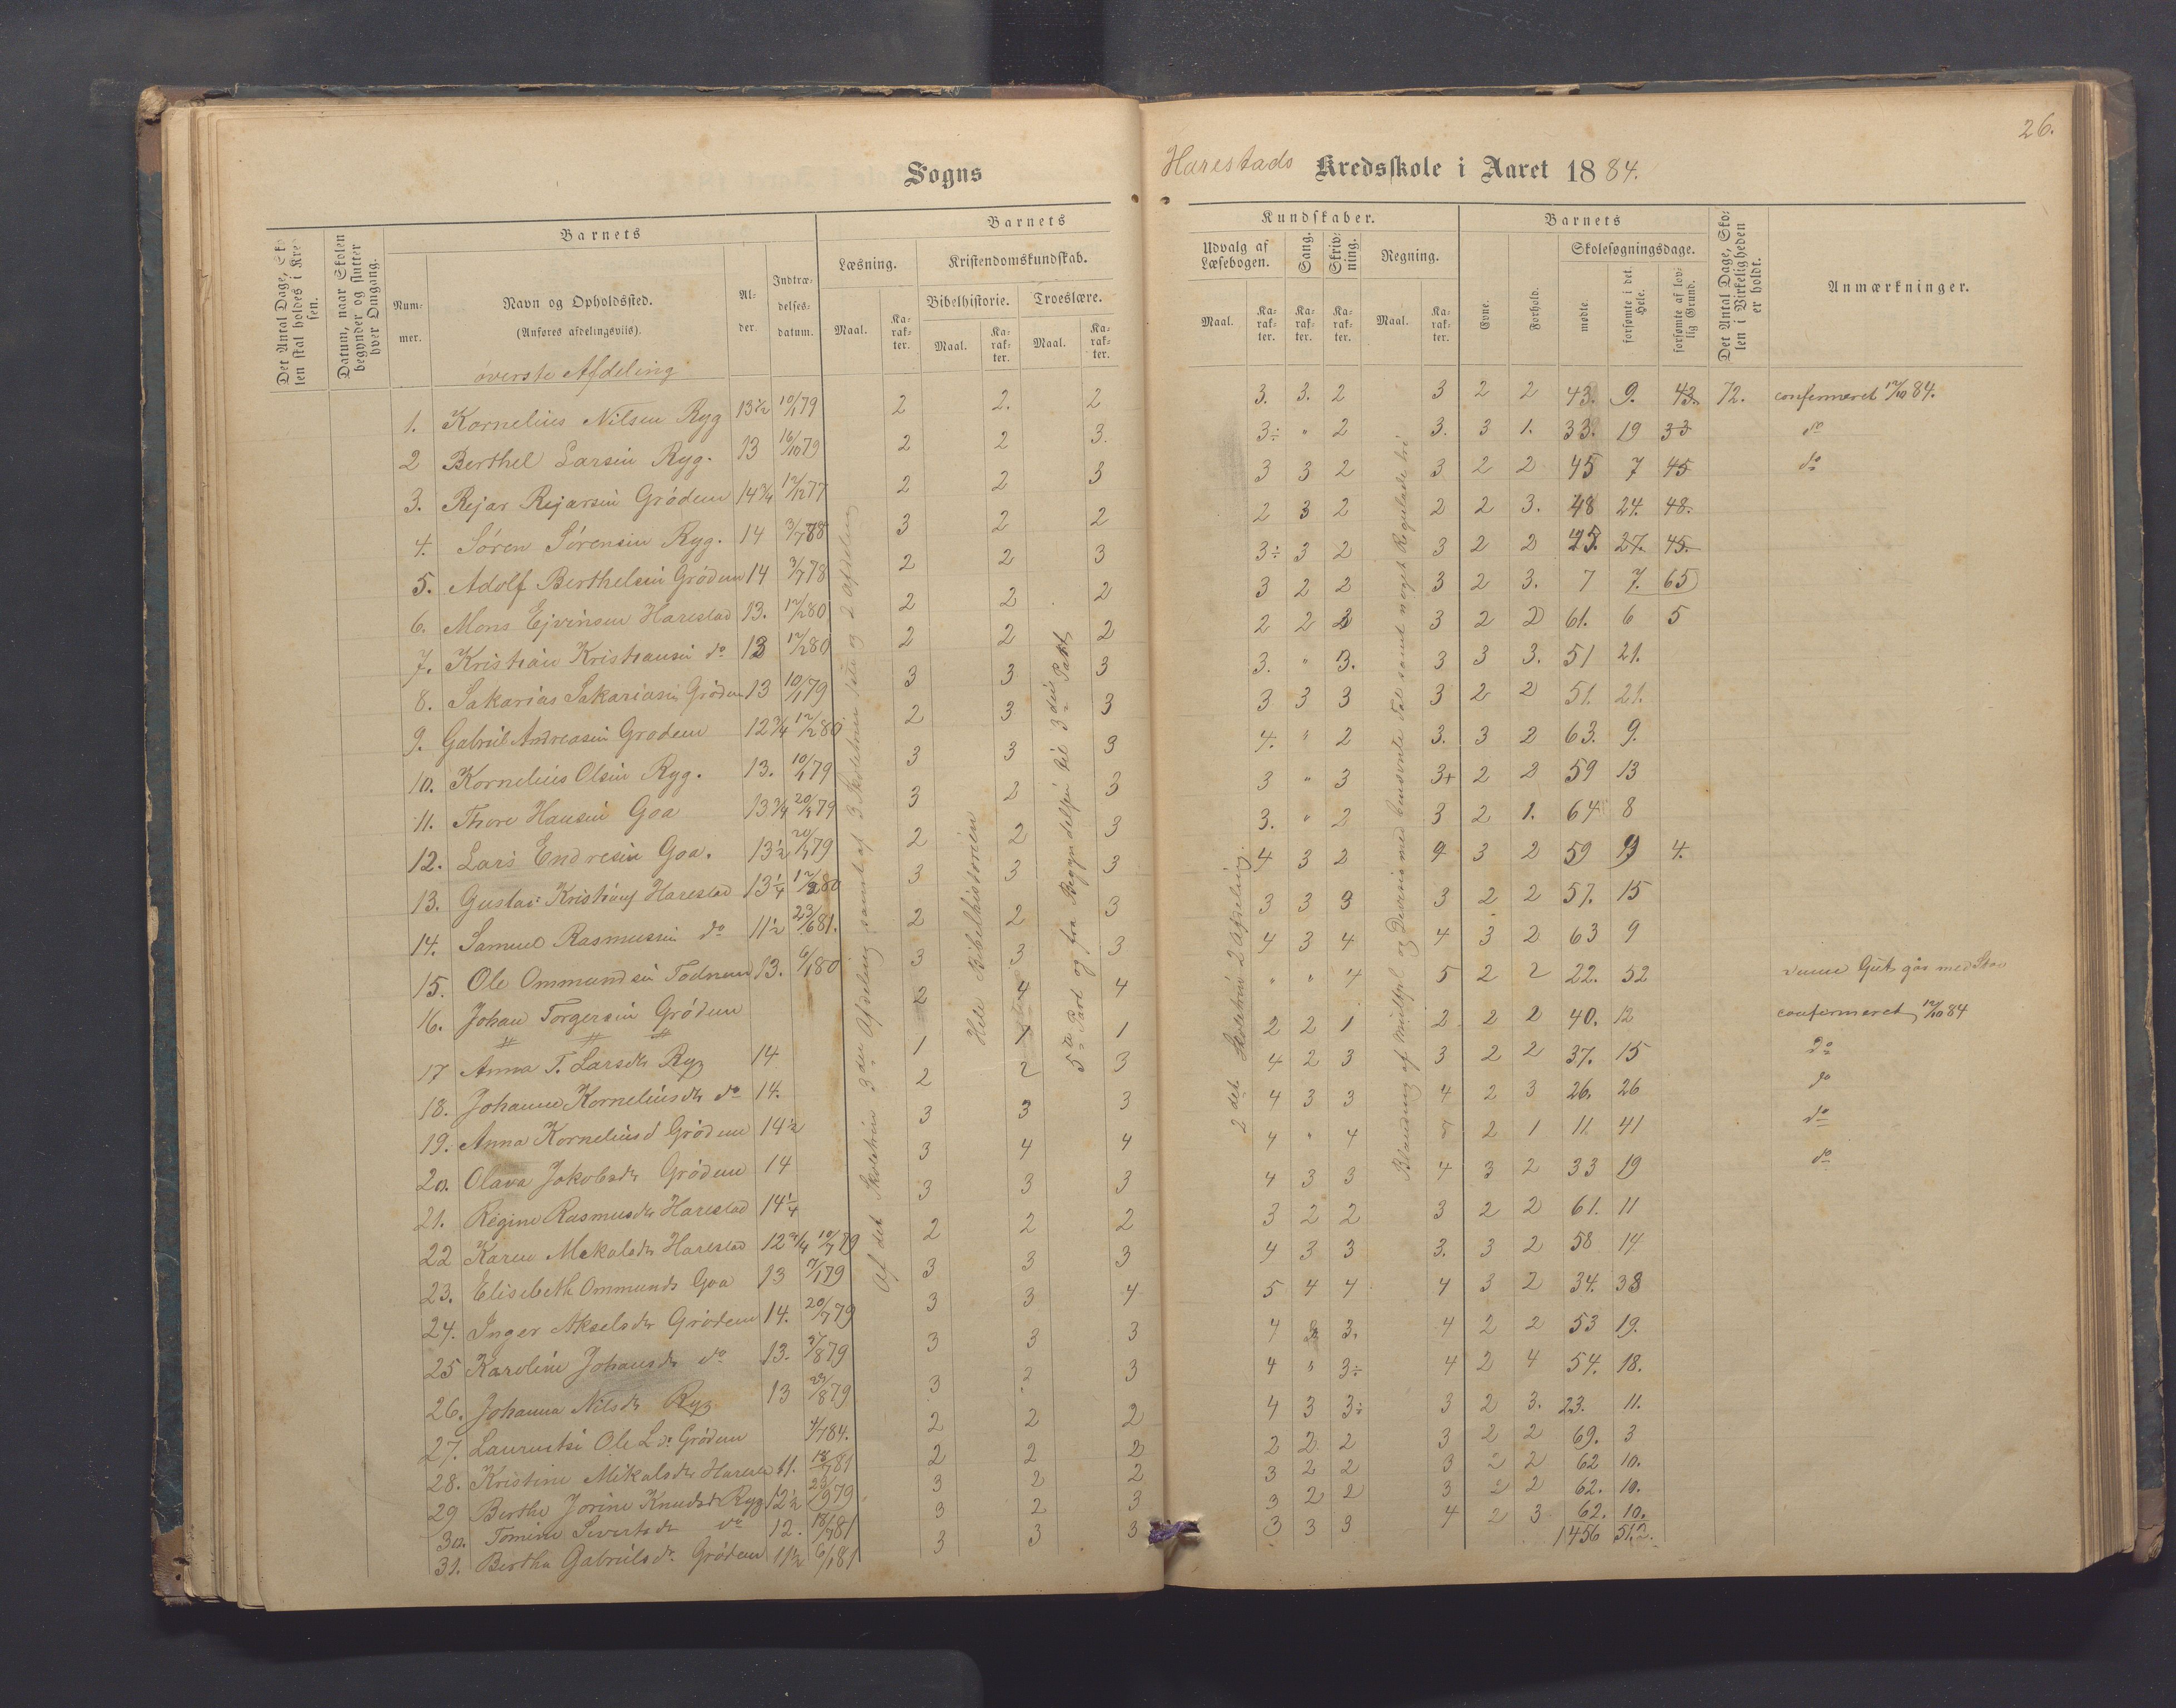 26.
Sogns
Harestads Kredsskole i Aaret 1884.
Det Antal Dage, Skolen skal holdes i Kredsen.
Datum, naar Skolen begynder og slutter hver Omgang.
Barnets
Nummer.
Navn og Opholdssted.
(Anføres afdelingsviis).
Alder.
Indtrædelsesdatum.
Barnets
Læsning.
Maal.
Karakter.
Kristendomskundskab.
Bibelhistorie.
Maal.
Karakter.
Troeslære.
Maal.
Karakter.
Kundskaber.
Udvalg af Læsebogen.
Maal.
Karakter.
Sang.
Karakter.
Skrivning.
Karakter.
Regning.
Maal.
Karakter.
Barnets
Evne.
Forhold.
Skolesøgningsdage.
mødte.
forsømte i det Hele.
forsømte af lovlig Grund.
Det Antal Dage, Skolen i Virkeligheden er holdt.
Anmærkninger.
øverste Afdeling
1. Kornelius Nilsen Ryg 13½ 10/1 79 2 2. 2 3. 3. 2 3 2 2 43. 9. 43. 72. confermeret 12/10 84.
2 Berthel Larsen Ryg. 13 16/10 79 2 2 3. 3÷ " 2 3. 3 1. 33. 19 33 do
3. Rejar Rejarsen Grödem 14¾ 12/12 77 2 2 3 3 3 2 3 2 2 45 7 45 do
4. Sören Sörensen Ryg. 14 3/7 78 3 2 2 2 3 2 2 2 3. 48 24. 48.
5. Adolf Berthelsen Grödem 14 3/7 78 2 2 3 3÷ 3 2 3 2 2 45. 27. 45.
6. Mons Ejvinsen Harestad 13. 12/1 80 2 2 2 3 2 2 3 2 3. 7 7. 65
7. Kristian Kristiansen do 13 12/1 80 2 2 2 2 2 3 3 2 2 61. 6 5
8. Sakarias Sakariasen Grödem 13 10/1 79 3 3 3 3. " 3. 3 3 3. 51 21.
9. Gabriel Andreasen Grodem 12¾ 12/1 80 2 3 3 3 3 3 3 2 2 51. 21.
10. Kornelius Olsen Ryg. 13. 10/1 79 3 3 3 4. " 2 3. 3 2 63. 9.
11. Thore Hansen Goa 13¾ 20/1 79 3 2 3 3 " 3 3+ 2 2 59 13
12. Lars Endresen Goa. 13½ 20/1 79 2 2 3 3. " 2 3 2 1. 64 8
13. Gustav Kristians Harestad 13¼ 12/2 80 3 3 3 4 3 2 4 3 2 59 13 4.
14. Samuel Rasmussen do 11½ 23/6 81. 2 2 3 3 3 3 3 2 2 57. 15
15. Ole Ommundsen Todnem 13. 6/1 80 3 3 3 4 3 4 4 3 2 63 9
16. Johan Torgersen Grödem 4 4 " " 4 5 2 2 22. 52 Denne Gut går med
17 Anna T. Larsdtr Ryg 14 1 1 1 2 2 1 2 2 2 40. 12 confermeret 12/10 84
18. Johanne Korneliusdtr do 14. 2 2 3 4 2 3 3 2 2 37. 15 do
19. Anna Korneliusd Grödem 14½ 3 3 3 4 3 3 4 2 3 26. 26 do
20. Olava Jakobsdtr Grödem 14 3 4 4 4 " 4 2 1 11. 41 do
21. Regine Rasmusdtr Harestad 14¼ 3 3 3 4 3 3 4 3 2 33 19 do
22 Karen Mekalsdtr Harestad 12¾ 10/7 79 2 2 2 3 2 2 3 2 2 61. 11
23. Elisebeth Ommunds Goa 13 7/1 79 3 3 3 4 3 3 3. 3 2 58 14
24. Inger Akselsdtr Grödem 14. 20/7 79 3 3 4 5 4 4 4 3 2 34. 38
25 Karoline Johansdtr do 13. 27/8 79 3 3 3 4 3 3. 4 2 2 53 19.
26. Johanna Nilsdtr Ryg 13 23/8 79 3 2 3 4 " 3÷ 4 2 4 54. 18.
27. Laurentse Ole L do Grödem 4/7 84. 2 2 2 4 3 3÷ 3 2 3. 23. 11.
28. Kristine Mikalsdtr Harestad 11. 18/7 81 2 2 2 2 2 2 3 2 2 69. 3
29 Berthe Jorine Knudsdtr Ryg 12½ 23/9 79 3 2 2 3 2 2 3 2 2 62 10.
30. Tomine Sivertsdtr do 12. 18/7 81 3 2 3 3 2 2 3 2 2 62. 10.
31. Bertha Gabrielsdtr. Grödem 11½ 6/1 81 3 3 3 3 3 3 4 2 3 62. 10.
1456 512.
Af det Skoletrin 3die Afdeling samt af 3 Skoletrin 1ste og 2 Afdeling
Hele Bibelhistorien
5te Part og fra Begyndelsen til 3die Part
2det Skoletrin 2 Afdeling.
Blanding af Multipl. og Division med benævnte Tal samt noget Reguladetri